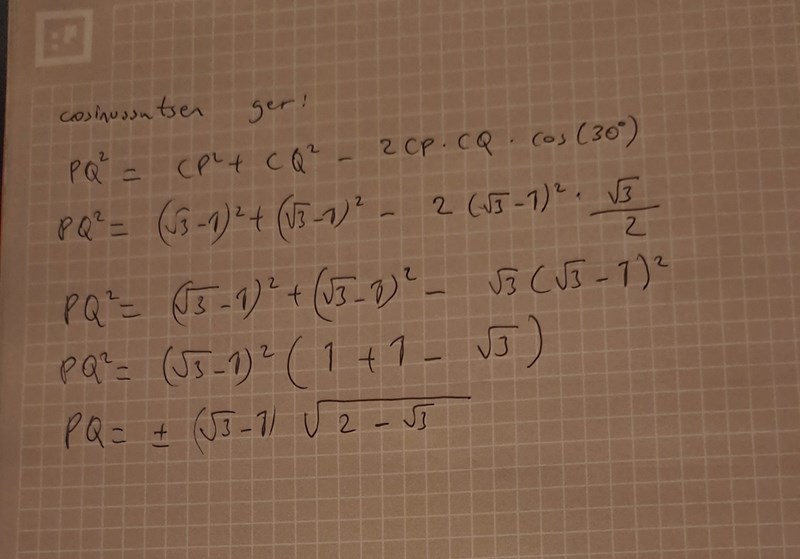 cosinussatsen ger:
PQ² = CP² + CQ² - 2CP · CQ · cos(30°)
PQ² = (√3-1)² + (√3-1)² - 2(√3-1)² · √3/2
PQ² = (√3-1)² + (√3-1)² - √3(√3-1)²
PQ² = (√3-1)² (1+1-√3)
PQ = ± (√3-1) √(2-√3)